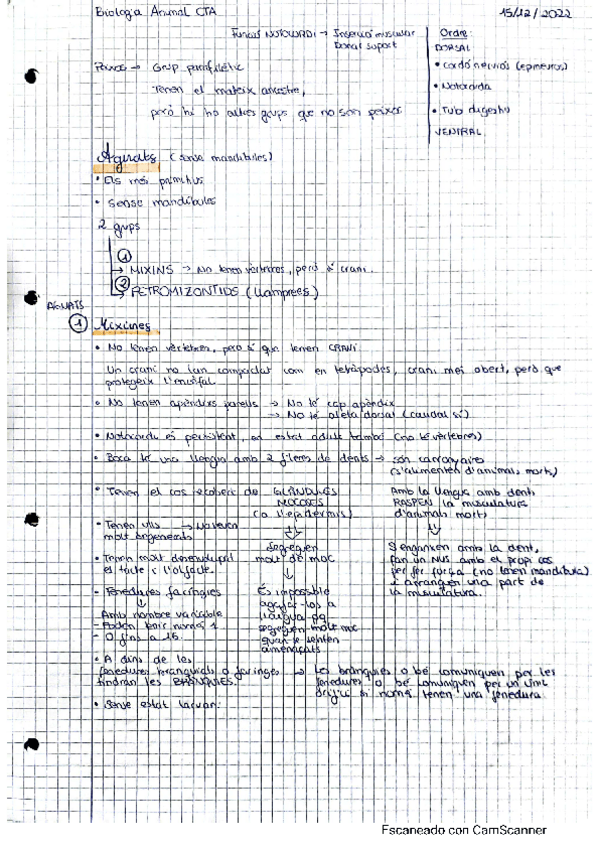 Biologia Animal CTA
15/12/2022
Funció NOTOCORDI → Inserció muscular
Donar suport
Ordre
DORSAL
• Cordó nerviós (epineuros)
• Notocorda
• Tub digestiu
VENTRAL
Peixos → Grup parafilètic
Tenen el mateix ancestre,
però hi ha altres grups que no són peixos
Agnats (sense mandíbules)
• Els més primitius
• Sense mandíbules
2 grups
① → MIXINS → No tenen vèrtebres, però sí crani.
② → PETROMIZONTIDS (Llamprees)
AGNATS
① Mixines
• No tenen vèrtebres, però sí que tenen CRANI
Un crani no tan compactat com en tetràpodes, crani més obert, però que
protegeix l'encèfal
• No tenen apèndixs parells → No té cap apèndix
→ No té aleta dorsal (caudal sí)
• Notocorda és persistent, en estat adult també (no té vèrtebres)
• Boca té una llengua amb 2 fileres de dents → són carronyaires
(s'alimenten d'animals morts)
• Tenen el cos recobert de GLÀNDULES
MUCOSES
(a l'epidermis)
Segreguen
molt de moc
És impossible
agafar-les a
l'aigua pq
segreguen molt moc
quan se senten
amenaçats
Amb la llengua amb dents
RASPEN la musculatura
d'animals morts
S'enganxen amb la dent,
fan un NUS amb el propi cos
per fer força (no tenen mandíbula)
i arranquen una part de
la musculatura.
• Tenen ulls → No veuen
molt degenerats
• Tenen molt desenvolupat
el tacte i l'olfacte.
• Fenedures faríngies
- Amb nombre variable
- Poden tenir només 1
- O fins a 15.
• A dins de les
fenedures branquials o faríngies
tindran les BRÀNQUIES.
→ Les brànquies o bé comuniquen per les
fenedures o bé comuniquen per un únic
orifici si només tenen una fenedura
• Sense estat larvari.
Escaneado con CamScanner